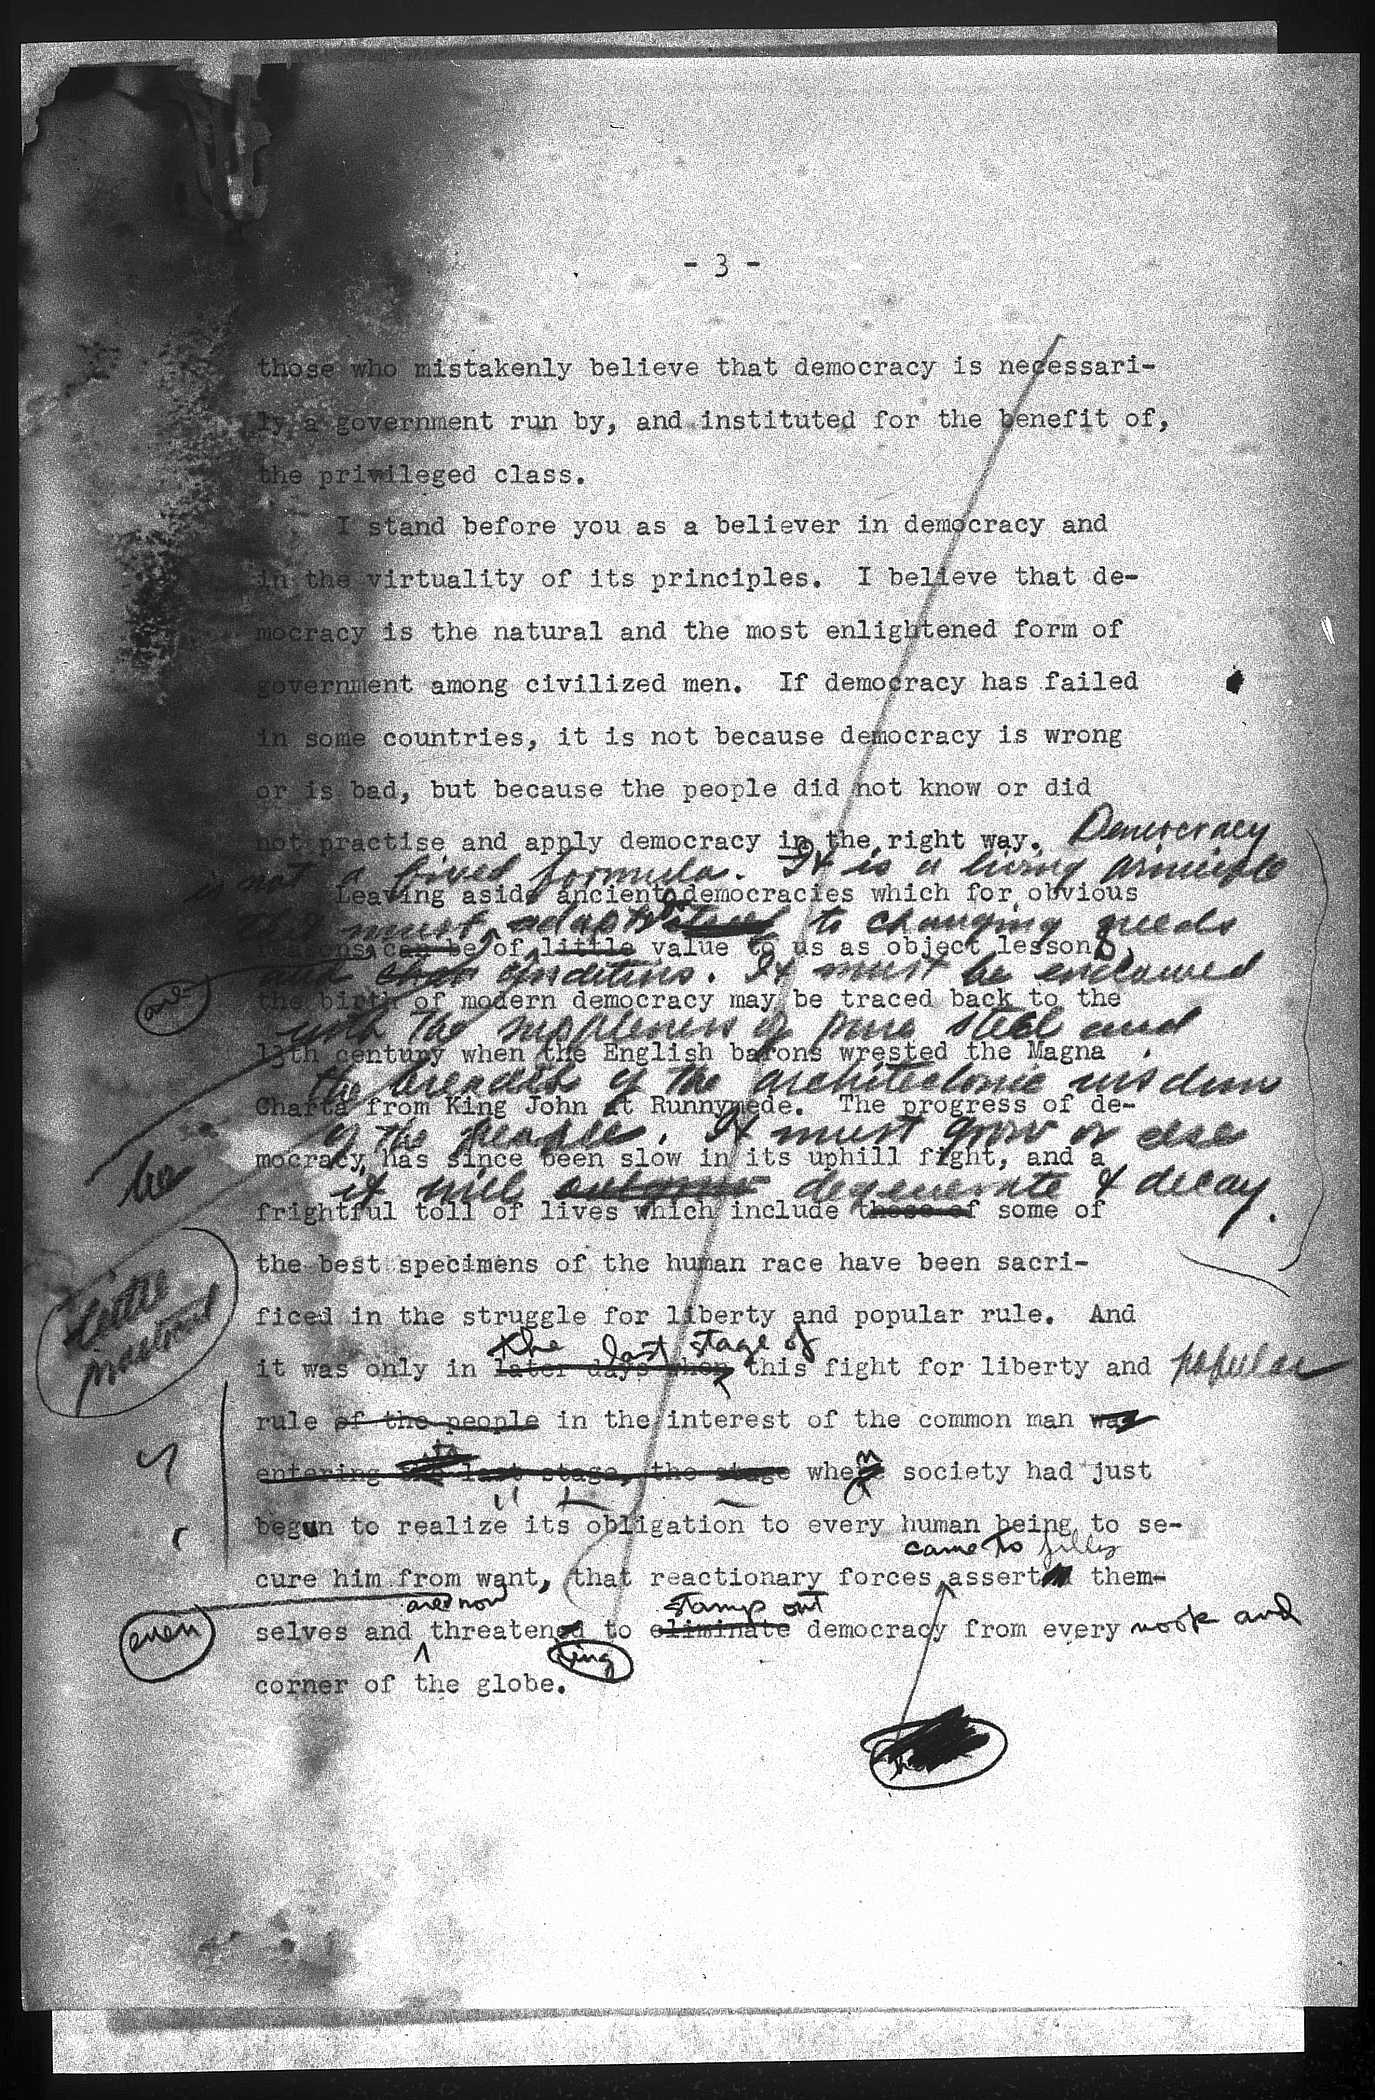 - 3 -
those who mistakenly believe that democracy is necessari-
ly a government run by, and instituted for the benefit of,
the privileged class.
I stand before you as a believer in democracy and
in the virtuality of its principles. I believe that de-
mocracy is the natural and the most enlightened form of
government among civilized men. If democracy has failed
in some countries, it is not because democracy is wrong
or is bad, but because the people did not know or did
not practise and apply democracy in the right way. Democracy
is not a fixed formula. It is a living principle
Leaving aside ancient democracies which for obvious
and must adapt itself to changing needs
reasons can be of little value to us as object lessons,
and conditions. It must be endowed
and
the birth of modern democracy may be traced back to the
with the suppleness of pure steel and
13th century when the English barons wrested the Magna
the breadth of the architectonic wisdom
Charta from King John at Runnymede. The progress of de-
of the people. It must grow or else
mocracy has since been slow in its uphill fight, and a
be
it will degenerate & decay.
frightful toll of lives which include those of some of
the best specimens of the human race have been sacri-
little
practical
ficed in the struggle for liberty and popular rule. And
the last stage of
it was only in later days when this fight for liberty and popular
rule of the people in the interest of the common man was
entering the last stage, the stage when society had just
begun to realize its obligation to every human being to se-
came to fully
cure him from want, that reactionary forces assert them-
are now
stamp out
even
selves and threatened to eliminate democracy from every nook and
ing
corner of the globe.